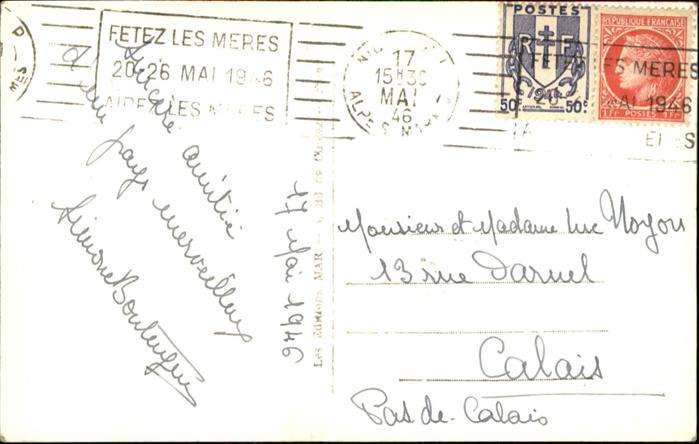 FETEZ LES MERES
20-26 MAI 1946
AIDEZ LES MERES
17
15H30
MAI
46
POSTES
RF
50c 50c
REPUBLIQUE FRANÇAISE
1Fr POSTES 1Fr
LES MERES
MAI 1946
Sincère amitié
d'un pays merveilleux
Simone Boulenguez
17 Mai 1946
Les Editions MAR
Monsieur et Madame Luc Noyon
13 rue Darnel
Calais
Pas-de-Calais